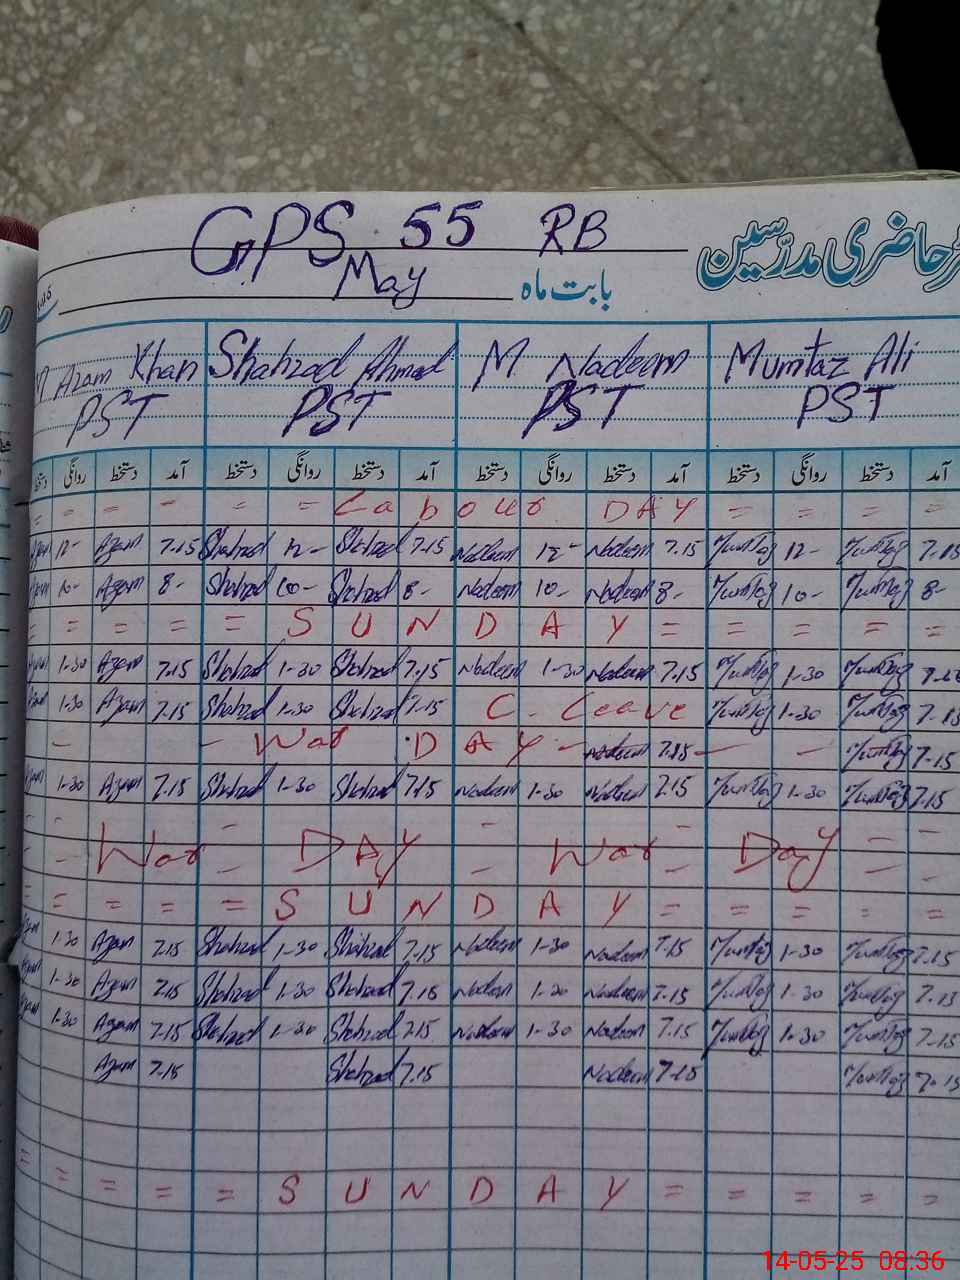 GPS 55 RB
حاضری مدرسین
May بابت ماہ
M Azam Khan Shahzad Ahmad M Nadeem Mumtaz Ali
PST PST PST PST
آمد دستخط روانگی دستخط آمد دستخط روانگی دستخط آمد دستخط روانگی دستخط آمد دستخط روانگی دستخط
= = = - = = Labour DAY = = = =
Azam 12- Azam 7.15 Shahzad 12- Shahzad 7.15 Nadeem 12- Nadeem 7.15 Mumtaz 12- Mumtaz 7.15
Azam 10- Azam 8- Shahzad 10- Shahzad 8- Nadeem 10- Nadeem 8- Mumtaz 10- Mumtaz 8-
= = = = = S U N D A Y = = = = =
Azam 1-30 Azam 7.15 Shahzad 1-30 Shahzad 7.15 Nadeem 1-30 Nadeem 7.15 Mumtaz 1-30 Mumtaz
Azam 1-30 Azam 7.15 Shahzad 1.30 Shahzad 7.15 C. Leave Mumtaz 1-30 Mumtaz 7.15
- - War DAY - Nadeem 7.15 - - Mumtaz 7-15
Azam 1-30 Azam 7.15 Shahzad 1-30 Shahzad 7.15 Nadeem 1-30 Nadeem 7.15 Mumtaz 1-30 Mumtaz 7.15
War DAY War Day
= = = = = S U N D A Y = = = = =
Azam 1-30 Azam 7.15 Shahzad 1-30 Shahzad 7.15 Nadeem 1-30 Nadeem 7.15 Mumtaz 1-30 Mumtaz 7.15
Azam 1-30 Azam 7.15 Shahzad 1-30 Shahzad 7.15 Nadeem 1-30 Nadeem 7-15 Mumtaz 1-30 Mumtaz 7.15
Azam 1-30 Azam 7.15 Shahzad 1-30 Shahzad 7.15 Nadeem 1-30 Nadeem 7.15 Mumtaz 1-30 Mumtaz 7-15
Azam 7.15 Shahzad 7.15 Nadeem 7-15 Mumtaz 7-15
= = = = = S U N D A Y = = = = =
14-05-25 08:36